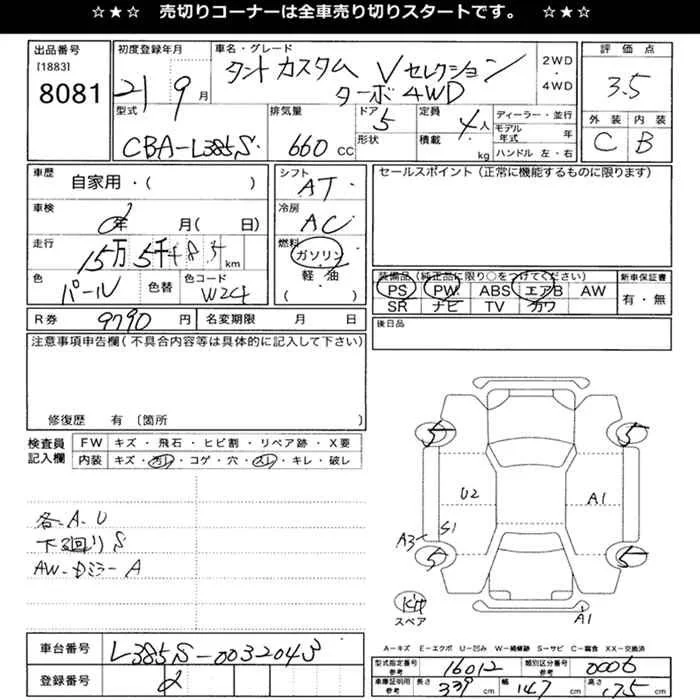 ☆★☆ 売切りコーナーは全車売り切りスタートです。 ☆★☆
出品番号
[1883]
8081
初度登録年月
21 9 月
車名・グレード
タントカスタム Vセレクション
ターボ4WD
2WD
・
4WD
評価点
3.5
外装 内装
C B
型式
CBA-L385S
排気量
660 cc
ドア 5
形状
定員 4人
積載 kg
ディーラー・並行
モデル年式 年
ハンドル 左・右
車歴
自家用・( )
シフト
AT
セールスポイント(正常に機能するものに限ります)
車検
年 月( 日)
冷房
AC
走行
15万 5千 km
燃料
ガソリン
軽・油
( )
色
パール
色替
色コード
W24
装備品(純正品に限り○をつけてください)
PS PW ABS エアB AW
SR ナビ TV カワ
新車保証書
有・無
R券 9790 円
名変期限 月 日
後日品
注意事項申告欄(不具合内容等は具体的に記入して下さい)
修復歴 有〔箇所 〕
検査員記入欄
FW キズ・飛石・ヒビ割・リペア跡・X要
内装 キズ・汚レ・コゲ・穴・スレ・キレ・破レ
各-A.U
下廻りS
AW-Dミラ-A
5 5
U2 A1
A3 S1
5 5
スペア
A1
車台番号 L385S-0032043
登録番号 2
A-キズ E-エクボ U-凹み W-補修跡 S-サビ C-腐食 XX-交換済
型式指定番号 参考 16012 類別区分番号 参考 0006
車庫証明用 参考 長さ 339 cm 幅 147 cm 高さ 175 cm